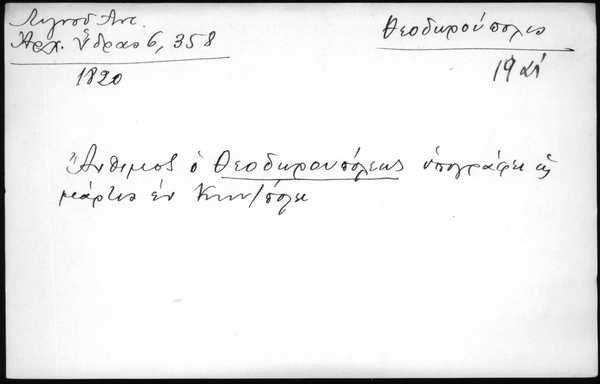 Λιγνοῦ Ἀντ.
Ἀρχ. Ὕδρας 6, 358
1820
Θεοδωρούπολις
19 αἰ
Ἄνθιμος ὁ Θεοδωρουπόλεως ὑπογράφει ὡς
μάρτυς ἐν Κων/πόλει